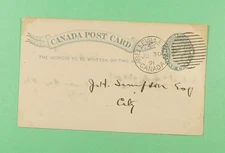 CANADA POST CARD
THE ADDRESS TO BE WRITTEN ON THIS SIDE
CANADA
J.H. Simpson Esq
City